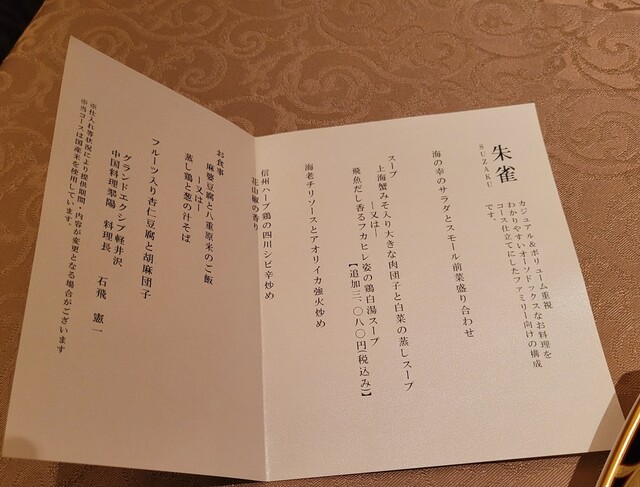 朱雀
SUZAKU
カジュアル&ボリューム重視
わかりやすいオーソドックスなお料理を
コース仕立てにしたファミリー向けの構成
です。
海の幸のサラダとスモール前菜盛り合わせ
スープ
上海蟹みそ入り大きな肉団子と白菜の蒸しスープ
―又は―
飛魚だし香るフカヒレ姿の鶏白湯スープ
【追加三、〇八〇円(税込み)】
海老チリソースとアオリイカ強火炒め
信州ハーブ鶏の四川シビ辛炒め
花山椒の香り
お食事
麻婆豆腐と八重原米のご飯
―又は―
蒸し鶏と葱の汁そば
フルーツ入り杏仁豆腐と胡麻団子
グランドエクシブ軽井沢
中国料理翠陽 料理長 石飛 憲一
※仕入れ等状況により提供期間・内容が変更となる場合がございます
※当コースは国産米を使用しています。